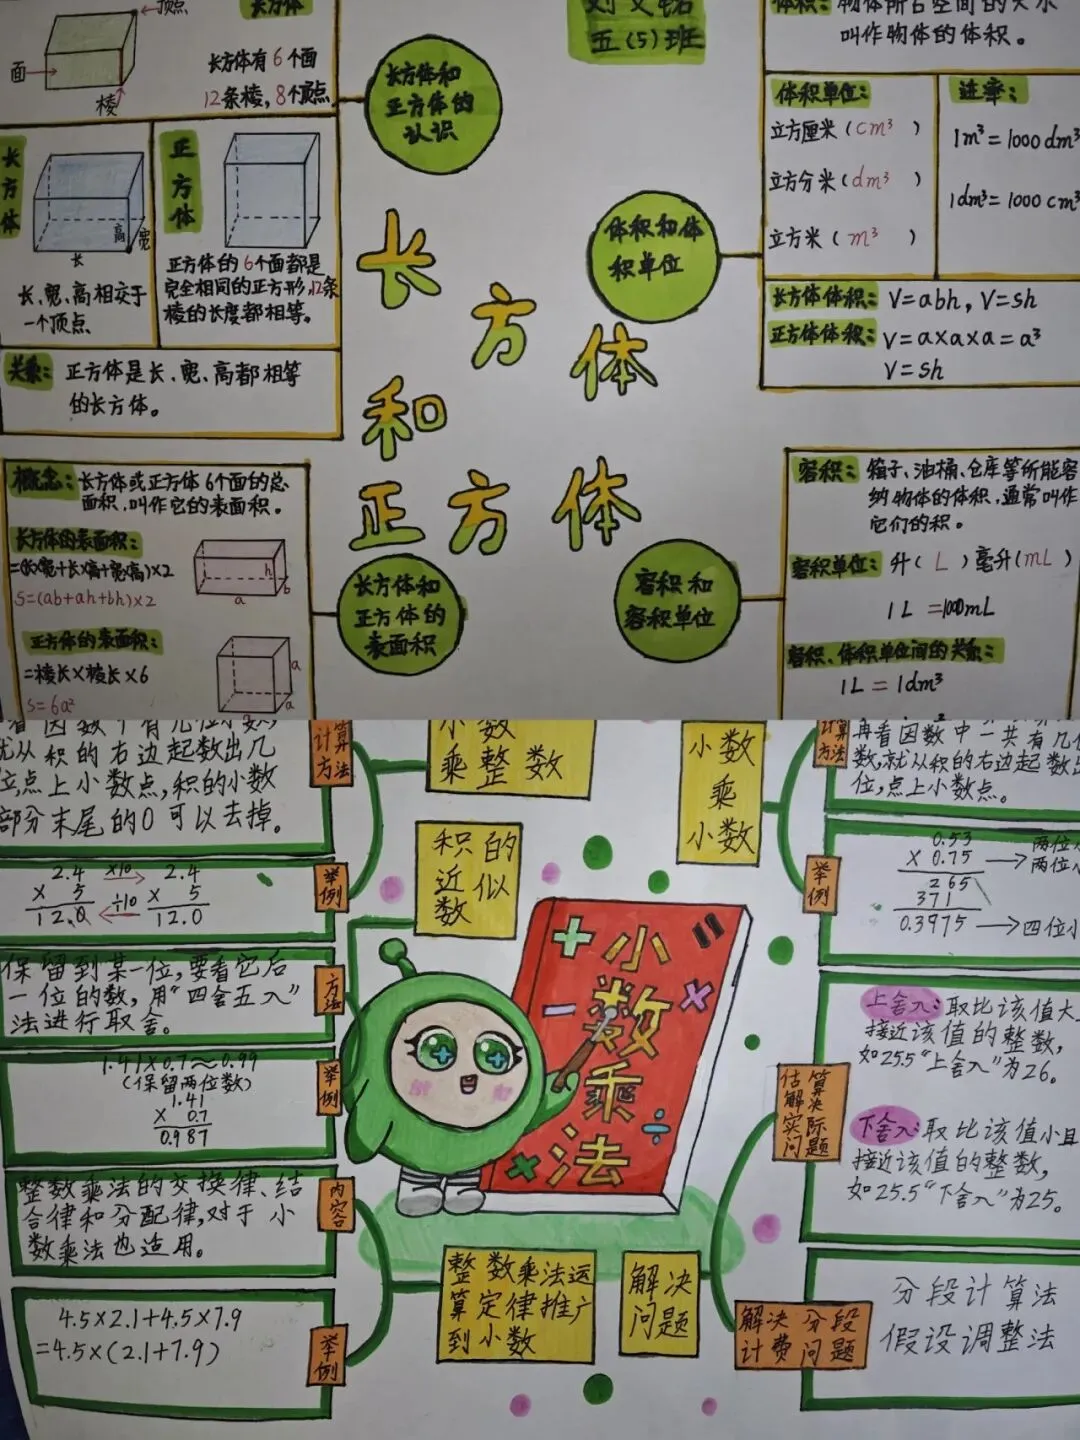 顶点
长方体
面
棱
长方体有6个面
12条棱,8个顶点
长方体和
正方体的
认识
五(5)班
叫作物体的体积。
体积单位:
立方厘米(cm³)
立方分米(dm³)
立方米(m³)
进率:
1m³=1000dm³
1dm³=1000cm³
长方体
高
宽
长
长、宽、高相交于
一个顶点
正方体
正方体的6个面都是
完全相同的正方形,12条
棱的长度都相等。
体积和体
积单位
长方体体积: V=abh, V=sh
正方体体积: V=a×a×a=a³
V=sh
关系: 正方体是长、宽、高都相等
的长方体。
长方体
和
正方体
概念: 长方体或正方体6个面的总
面积,叫作它的表面积。
长方体的表面积:
=(长×宽+长×高+宽×高)×2
S=(ab+ah+bh)×2
h
b
a
正方体的表面积:
=棱长×棱长×6
S=6a²
a
a
长方体和
正方体的
表面积
容积和
容积单位
容积: 箱子、油桶、仓库等所能容
纳物体的体积,通常叫作
它们的积。
容积单位: 升(L) 毫升(mL)
1L=1000mL
容积、体积单位间的关系:
1L=1dm³
就从积的右边起数出几
位,点上小数点,积的小数
部分末尾的0可以去掉。
计算
方法
小数
乘整数
小数
乘
小数
计算
方法
再看因数中一共有几位
数,就从积的右边起数出
位,点上小数点。
2.4 ×10 2.4
× 5 ÷10 × 5
12.0 12.0
举例
积的
近似
数
举例
0.53
× 0.75
两位小
两位小
265
371
0.3975
四位小
保留到某一位,要看它后
一位的数,用“四舍五入”
法进行取舍。
方法
1.41×0.7≈0.99
(保留两位数)
1.41
× 0.7
0.987
举例
小数乘法
估算
解决
实际
问题
上舍入: 取比该值大
接近该值的整数,
如25.5“上舍入”为26。
下舍入: 取比该值小且
接近该值的整数,
如25.5“下舍入”为25。
整数乘法的交换律、结
合律和分配律,对于小
数乘法也适用。
内容
4.5×2.1+4.5×7.9
=4.5×(2.1+7.9)
举例
整数乘法运
算定律推广
到小数
解决
问题
解决分段
计费问题
分段计算法
假设调整法